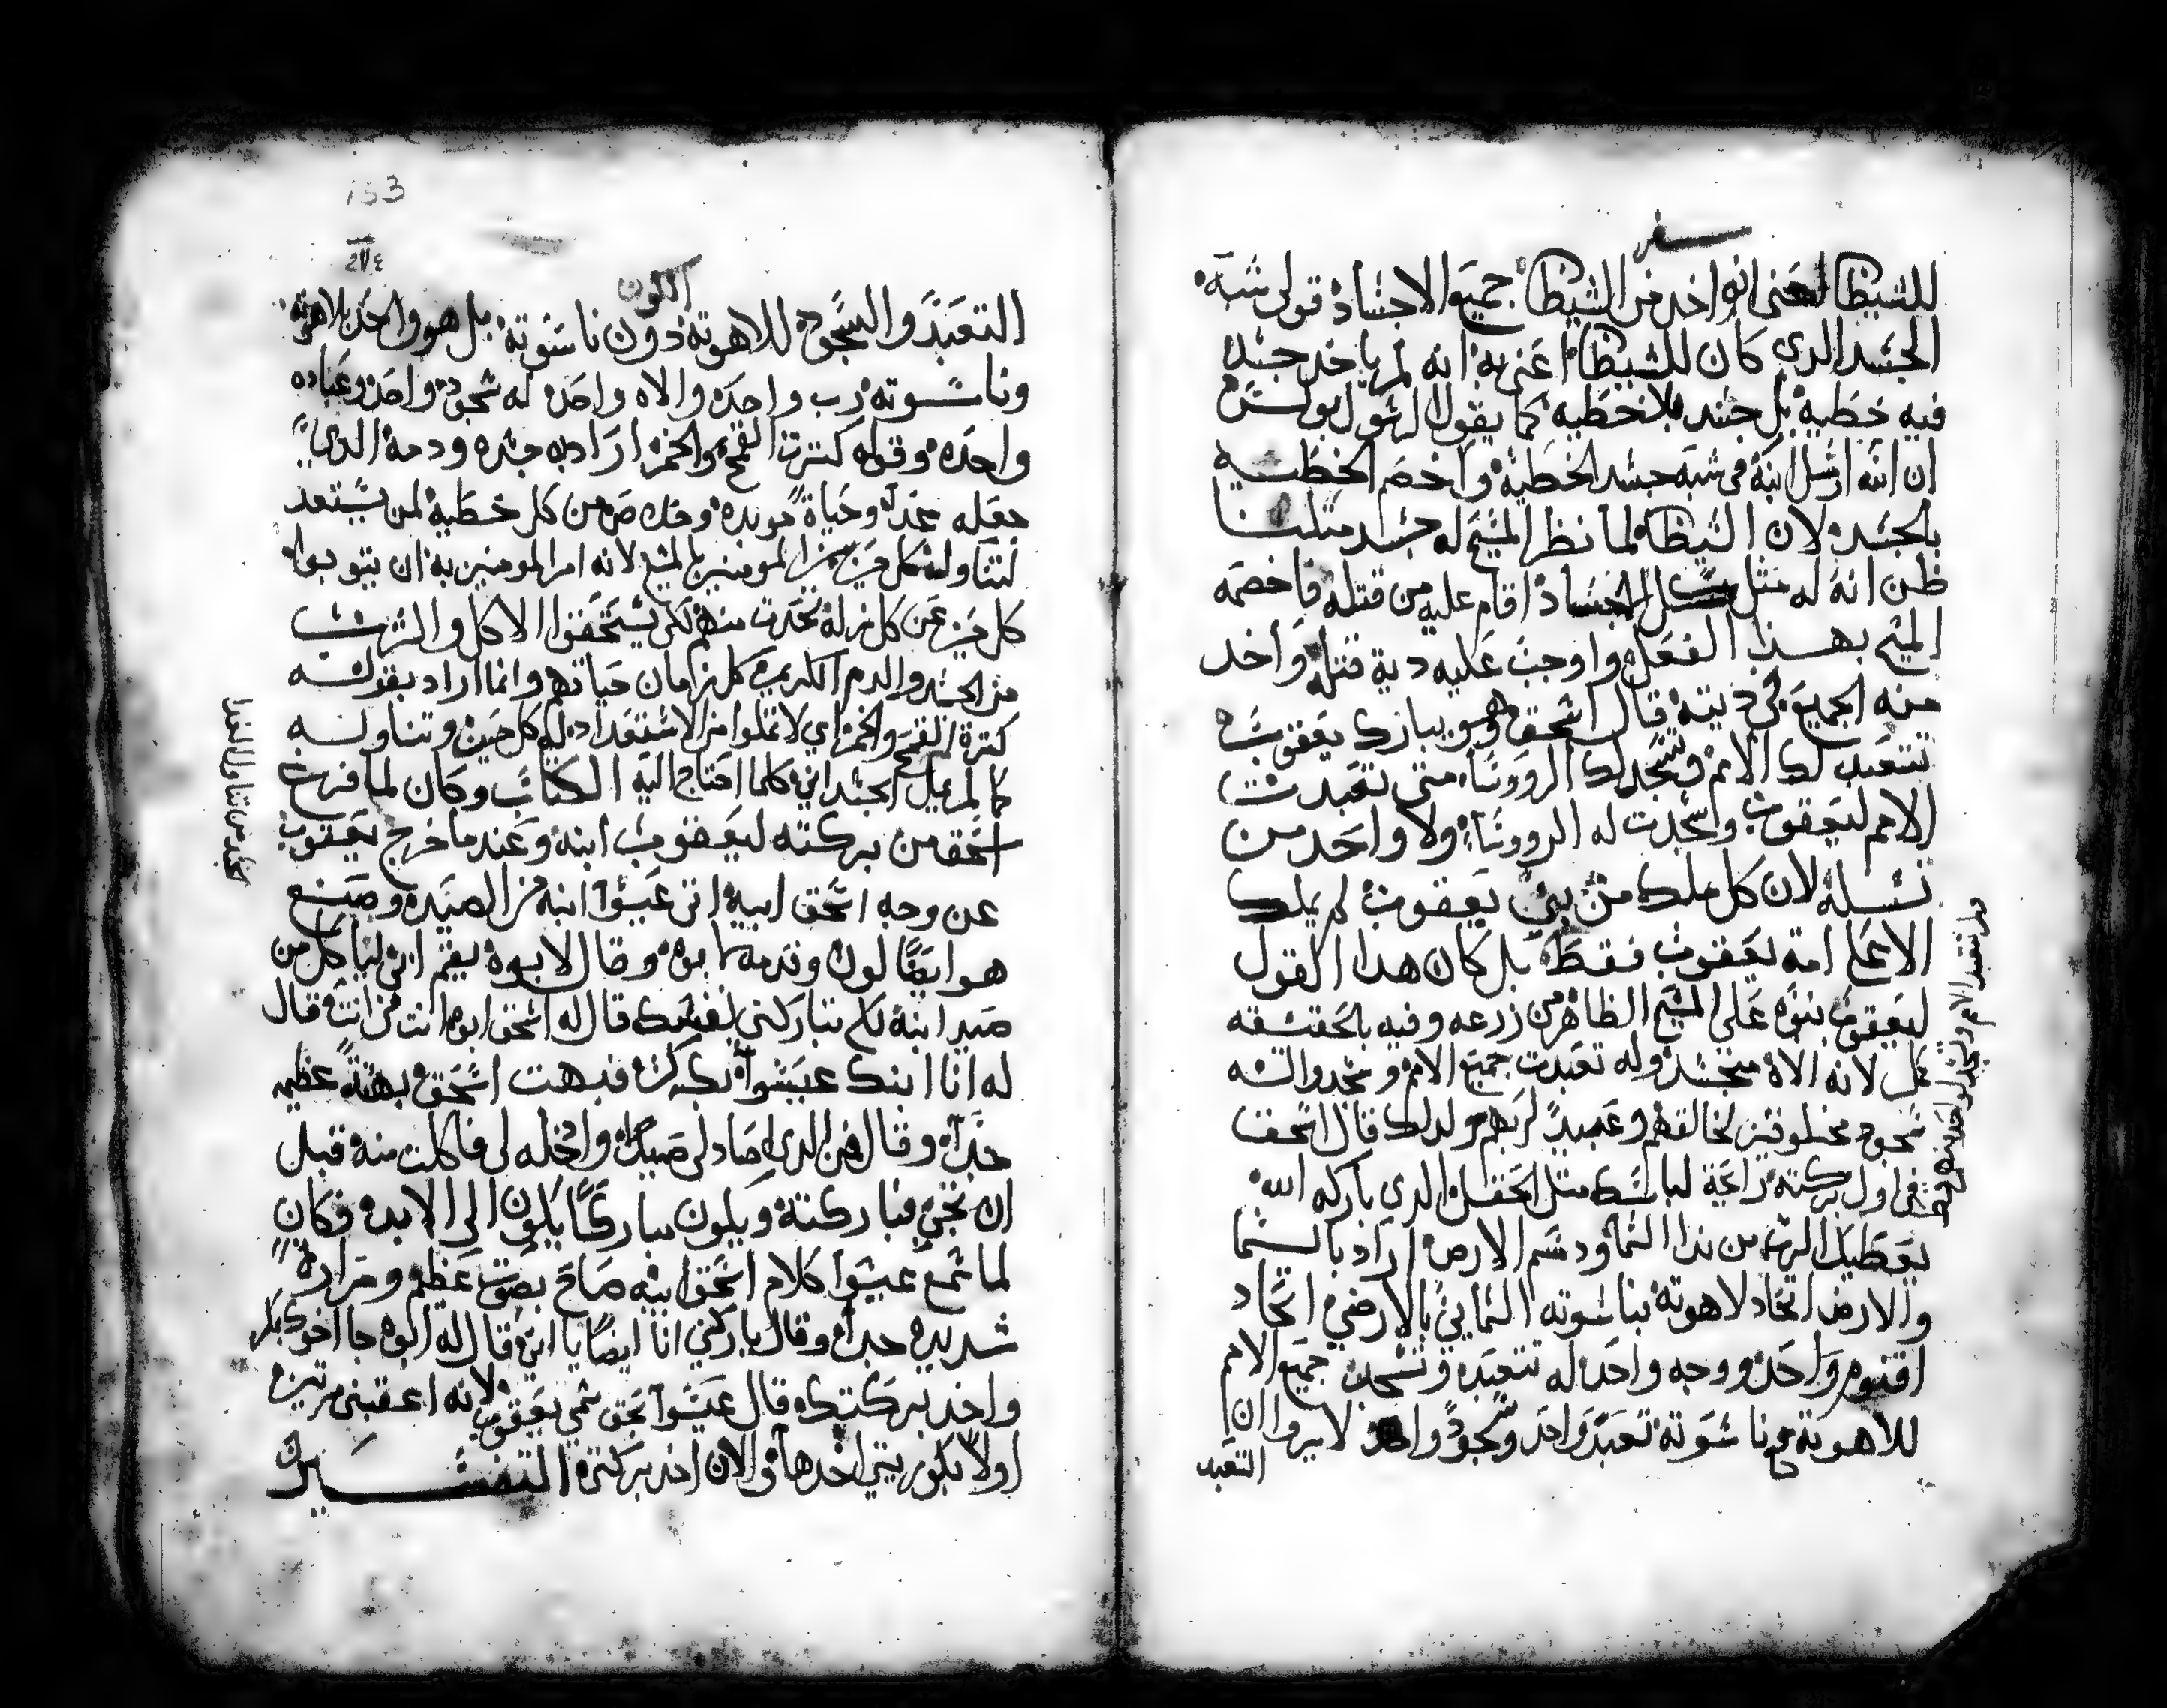 سفر
للشيطان اعنى انه اخد من الشيطان جميع الاجساد قولى شبه
الجسد الدي كان للشيطان اعنى به انه لم ياخد جسد
فيه خطيه بل جسد بلا خطيه كما يقول الرسول بولس
ان الله ارسل ابنه في شبه جسد الخطية واخصم الخطيه
بالجسد لان الشيطان لما نظر المسيح له جسد متلنا
ظن انه له متل الاجساد اقام عليه من قتله فاخصمه
المسيح بهذا الفعل واوجب عليه دية قتله واخد
منه الجميع في ديته قال اسحق وهو يبارك يعقوب
تتعبد لك الامم وتسجد لك الرووسا متى تعبدت
الامم ليعقوب واسجدت له الرووسا ولا واحد من
نسله لان كل ملك من بني يعقوب لم يملك
الا على امة يعقوب فقط بل كان هدا القول
ليعقوب بنبوه على المسيح الظاهر من زرعه وفيه بالحقيقه
كمل لانه الاه متجسد وله تعبدت جميع الامم وسجدوا له
سجود مخلوقين لخالقهم وعبيد لربهم ولدلك قال اسحق
في اول بركته رايحة لباسك متل الحقل الدي باركه الله
يعطيك الرب من ندا السما ودسم الارض اراد بالسما
والارض اتحاد لاهوته بناسوته السمايي بالارضي اتحاد
اقنوم واحد ووجه واحد له تتعبد وتسجد جميع الامم
للاهوته مع ناسوته تعبد واحد وسجود واحد لا يروا ان
التعبد
153
٢٧٤
التكوين
التعبد والسجود للاهوته دون ناسوته بل هو واحد بلاهوته
وناسوته رب واحد والاه واحد له سجود واحد وعباده
واحده وقوله كترت القمح والخمر اراد به جسده ودمه الدي
جعله وحياة موبده وخلاص من كل خطيه لمن يستعد
لتناوله كل حين من المومنين بالمسيح لانه امر المومنين به ان يتوبوا
كل حين عن كل زله تحدت منهم لكي يستحقوا الاكل والشرب
من الجسد والدم الكريمين كل زمان حياتهم وانما اراد بقوله
كترة القمح والخمر اي لا تملوا من الاستعداد له كل حين وتناوله
كما لم يمل الجسداني كلما احتاج اليه الكتاب وكان لما فرغ
اسحق من بركته ليعقوب ابنه وعند ما خرج يعقوب
عن وجه اسحق ابيه اتى عيسوا ابنه من الصيد وصنع
هو ايضا لون وقدمه لابوه وقال لابوه يقم ابي لياكل من
صيد ابنه لكي تباركني نفسك قال له اسحق ابوه انت من انت قال
له انا ابنك عيسوا بكرك فبهت اسحق بهتة عظيمه
جدا وقال فمن الدي صاد لي صيدا وادخله لي فاكلت منه قبل
ان تجي فباركته ويكون مباركا يكون الى الابد فكان
لما سمع عيسوا كلام اسحق ابيه صاح بصوت عظيم ومراره
شديده جدا وقال باركني انا ايضا يا ابي قال له ابوه جا اخوك بمكر
واخد بركتك قال عيسوا بحق سمي يعقوب لانه اعقبني مرتين
اولا بكوريتي اخدها والان اخد بركتي التفسير